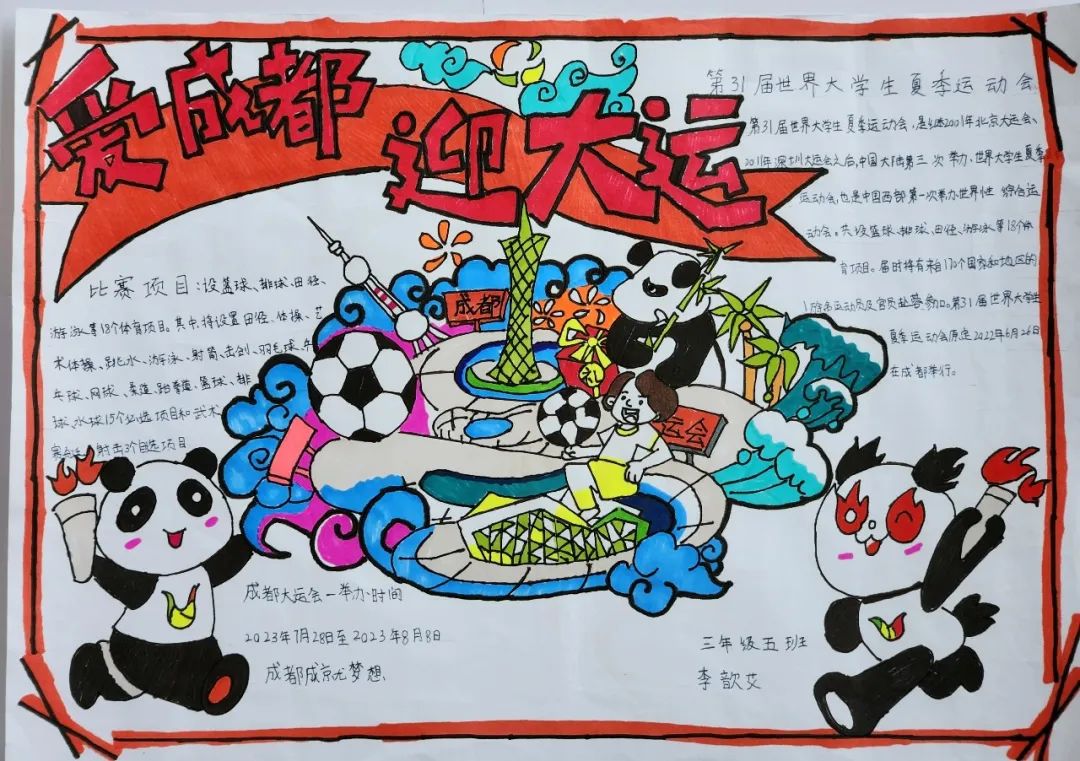 爱成都
迎大运
第31届世界大学生夏季运动会
第31届世界大学生夏季运动会,是继2001年北京大运会、
2011年深圳大运会之后,中国大陆第三次举办世界大学生夏季
运动会,也是中国西部第一次举办世界性综合运
动会。共设篮球、排球、田径、游泳等18个体
育项目。届时将有来自170个国家和地区的
运动员及官员赴蓉参加。第31届世界大学生
夏季运动会原定2022年6月26日
在成都举行。
比赛项目:设篮球、排球、田径、
游泳等18个体育项目。其中,将设置田径、体操、艺
术体操、跳水、游泳、射箭、击剑、羽毛球、乒
乓球、网球、柔道、跆拳道、篮球、排
球、水球15个必选项目和武术、
射击3个自选项目
成都
运会
成都大运会-举办时间
2023年7月28日至2023年8月8日
成都成就梦想
三年级五班
李歆艾